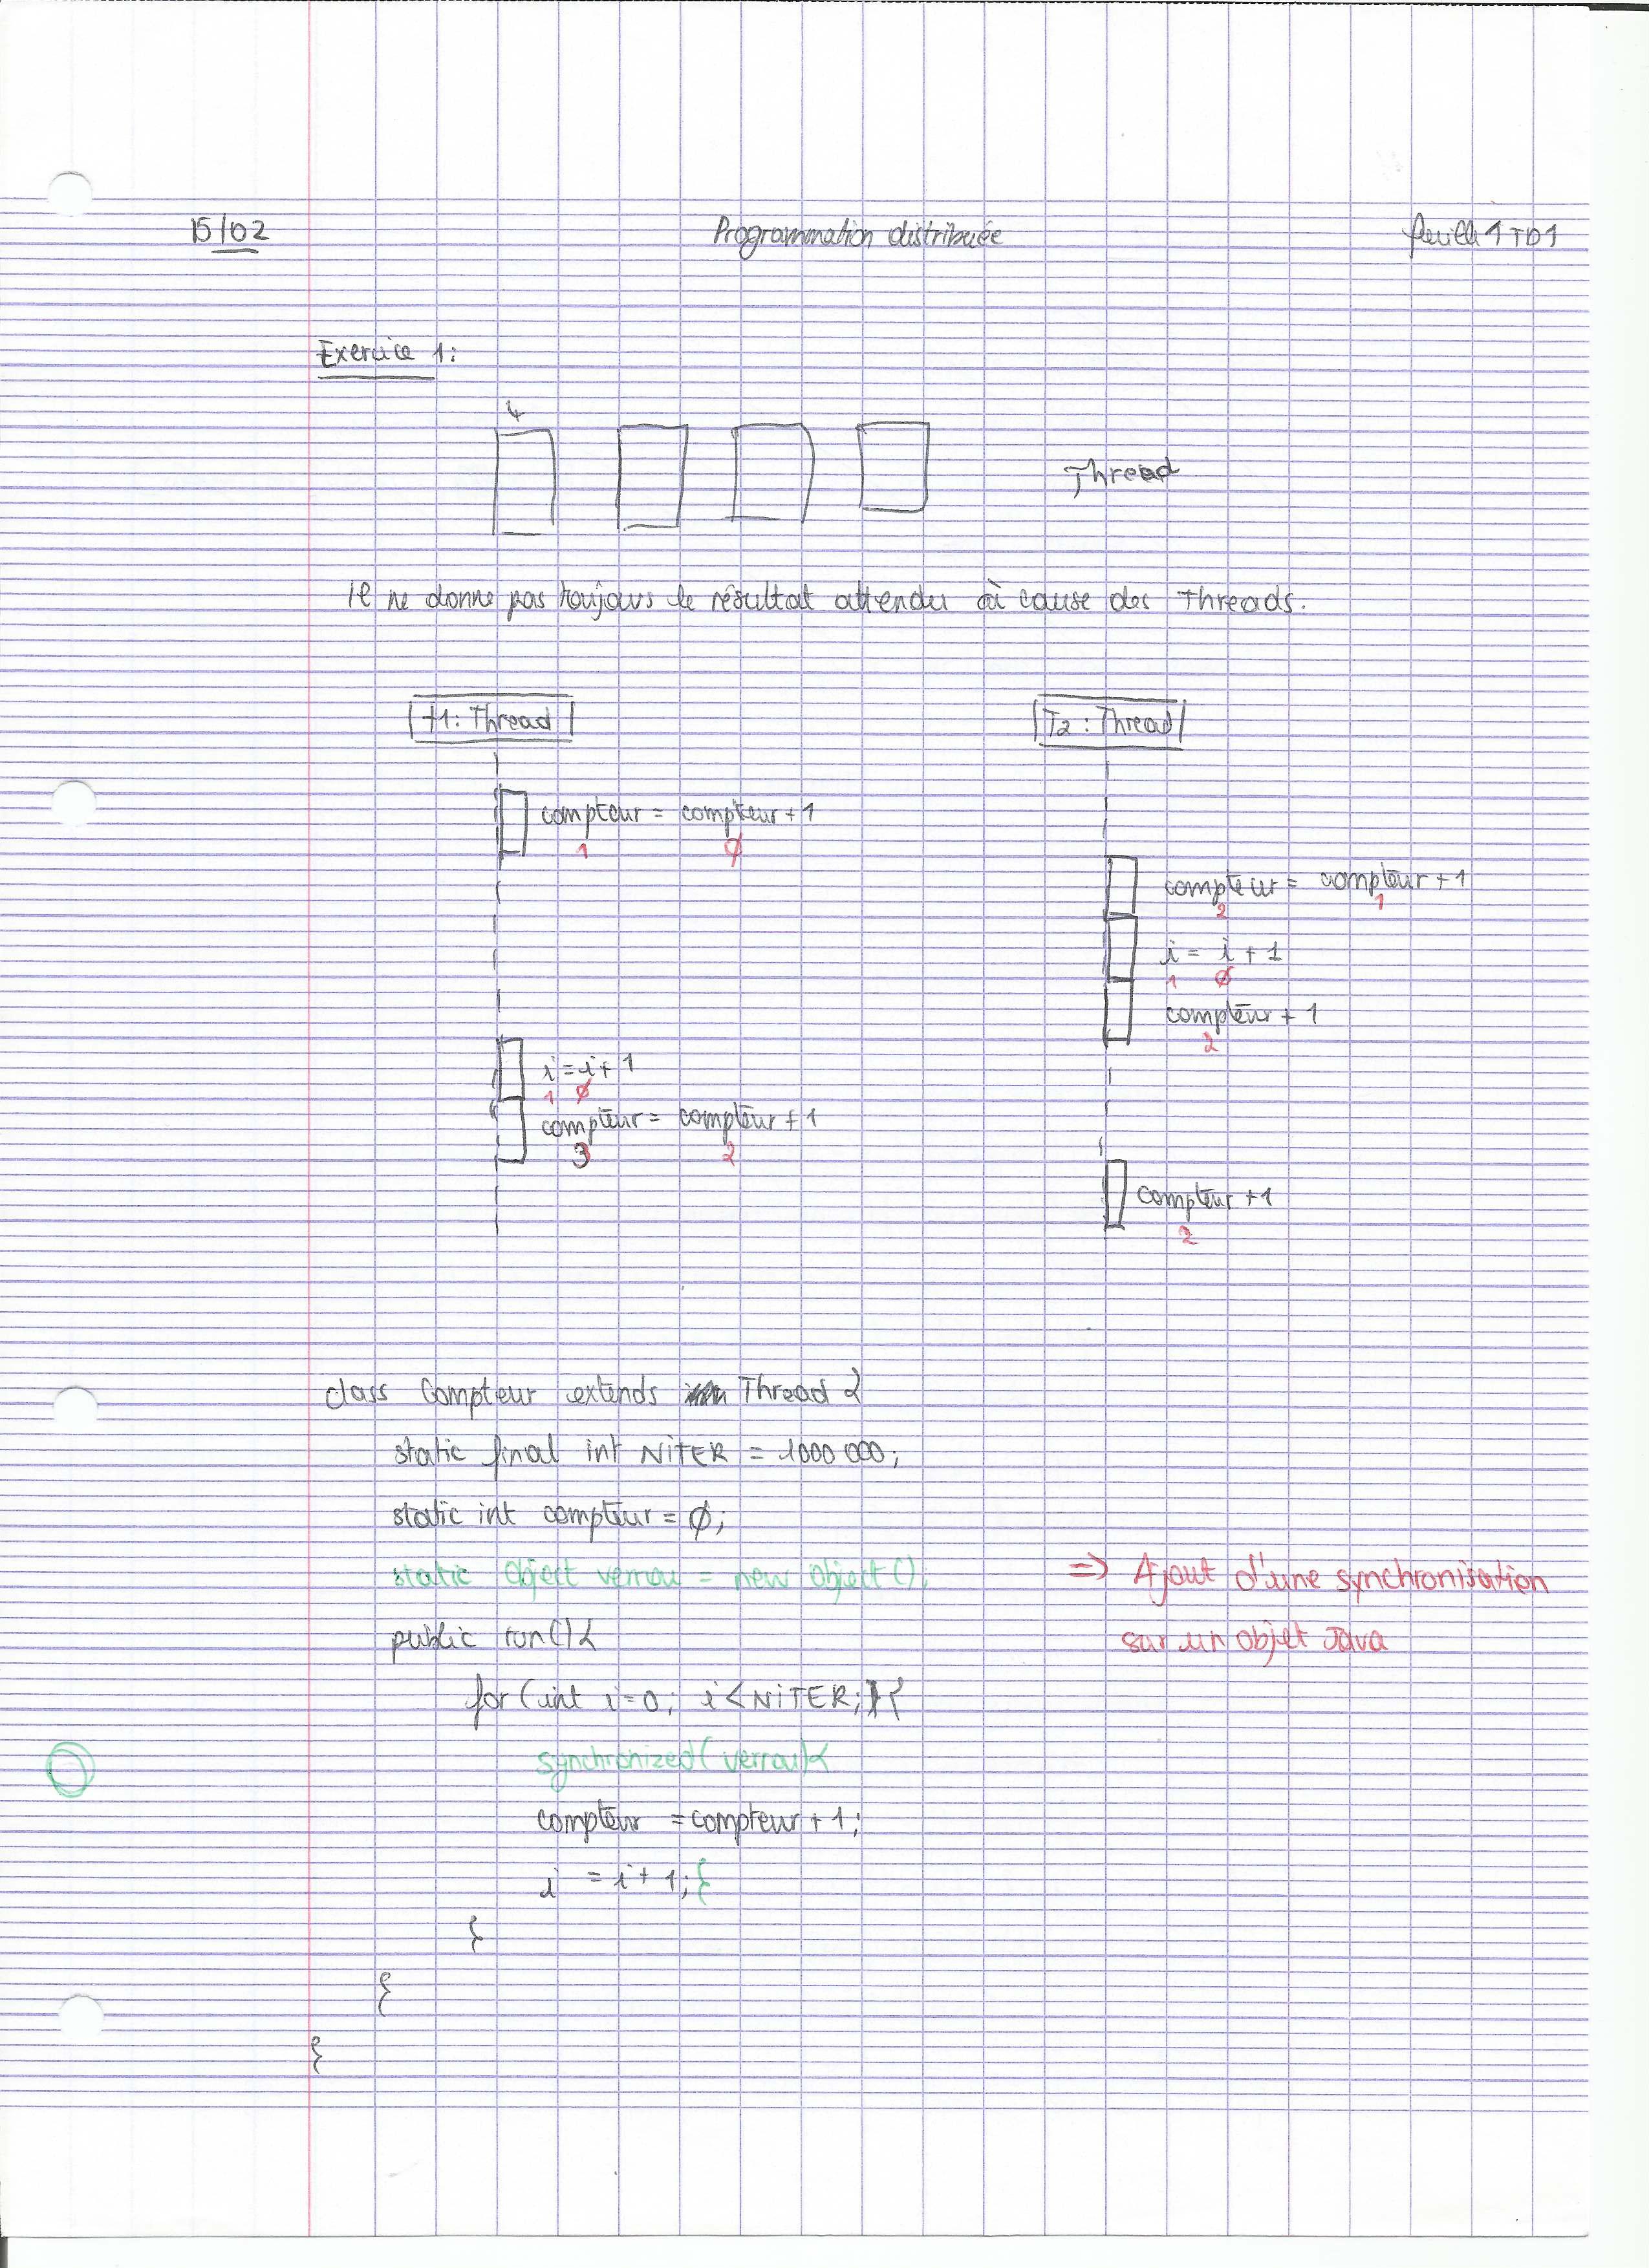 15/02 Programmation distribuée feuille 1 TD1
Exercice 1:
4
Thread
Il ne donne pas toujours le résultat attendu à cause des Threads.
t1: Thread T2: Thread
compteur = compteur + 1
1 0
compteur = compteur + 1
2 1
i = i + 1
1 0
compteur + 1
2
i = i + 1
1 0
compteur = compteur + 1
3 2
compteur + 1
2
class Compteur extends Thread {
static final int NITER = 1000 000;
static int compteur = 0;
static Object verrou = new object(); => Ajout d'une synchronisation
public run() { sur un objet Java
for (int i=0; i<NITER;) {
synchronized(verrou) {
compteur = compteur + 1;
i = i + 1; }
}
}
}